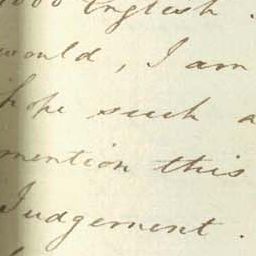 1000 English.
would, I am
hope such a
mention this
Judgement.